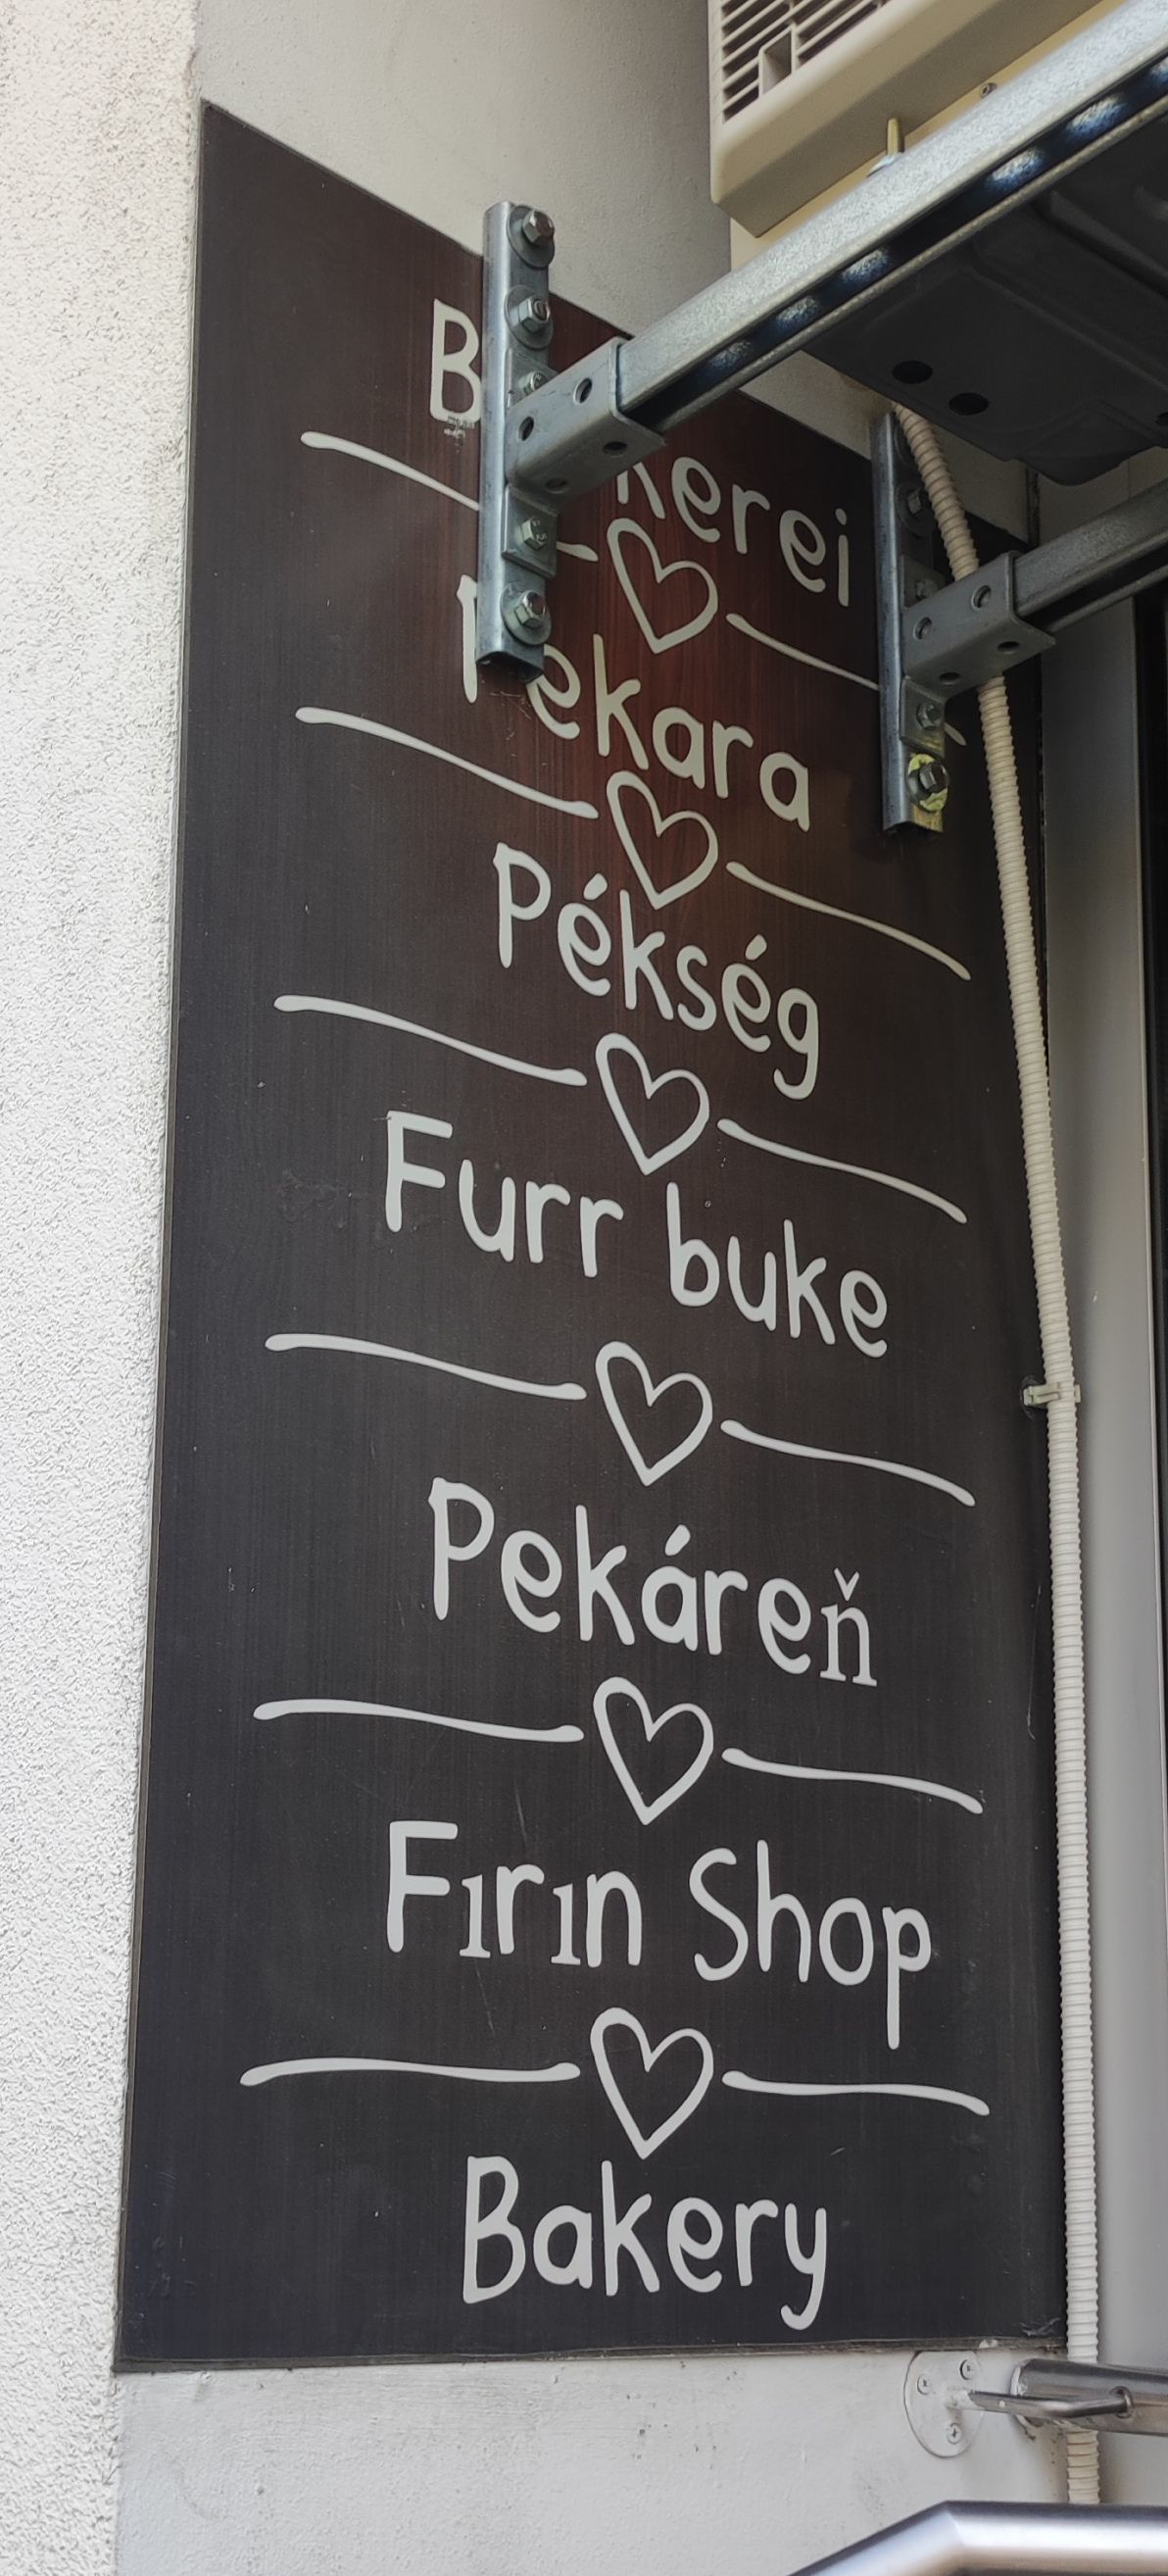 Pekara
Pékség
Furr buke
Pekáreň
Fırın Shop
Bakery